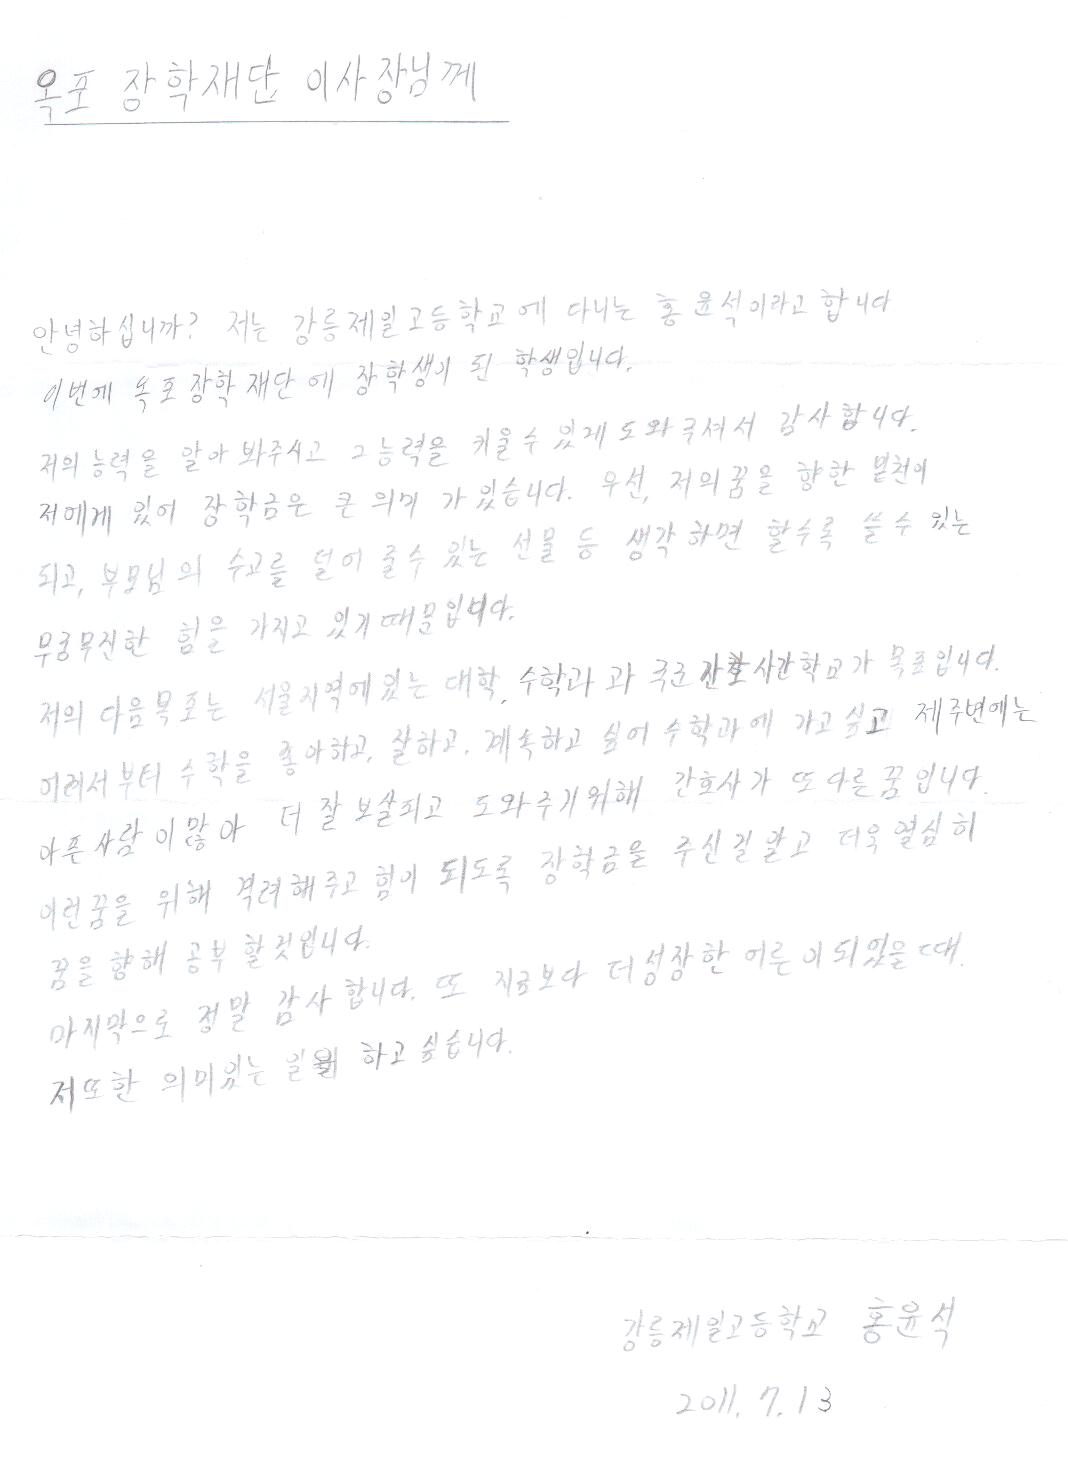 옥포 장학재단 이사장님께
안녕하십니까? 저는 강릉제일고등학교에 다니는 홍윤석이라고 합니다
이번에 옥포장학재단에 장학생이 된 학생입니다.
저의 능력을 알아 봐주시고 그 능력을 키울수 있게 도와주셔서 감사합니다.
저에게 있어 장학금은 큰 의미가 있습니다. 우선, 저의꿈을 향한 밑천이
되고, 부모님의 수고를 덜어 줄수 있는 선물 등 생각하면 할수록 쓸 수 있는
무궁무진한 힘을 가지고 있기때문입니다.
저의 다음목표는 서울지역에있는 대학, 수학과 과 국군간호사관학교가 목표입니다.
어려서부터 수학을 좋아하고, 잘하고, 계속하고 싶어 수학과에 가고싶고 제주변에는
아픈사람이많아 더 잘 보살피고 도와주기위해 간호사가 또 다른 꿈입니다.
이런꿈을 위해 격려해주고 힘이 되도록 장학금을 주신걸알고 더욱 열심히
꿈을 향해 공부 할것입니다.
마지막으로 정말 감사합니다. 또 지금보다 더성장한 어른이되있을때.
저또한 의미있는 일 하고 싶습니다.
강릉제일고등학교 홍윤석
2011. 7. 13